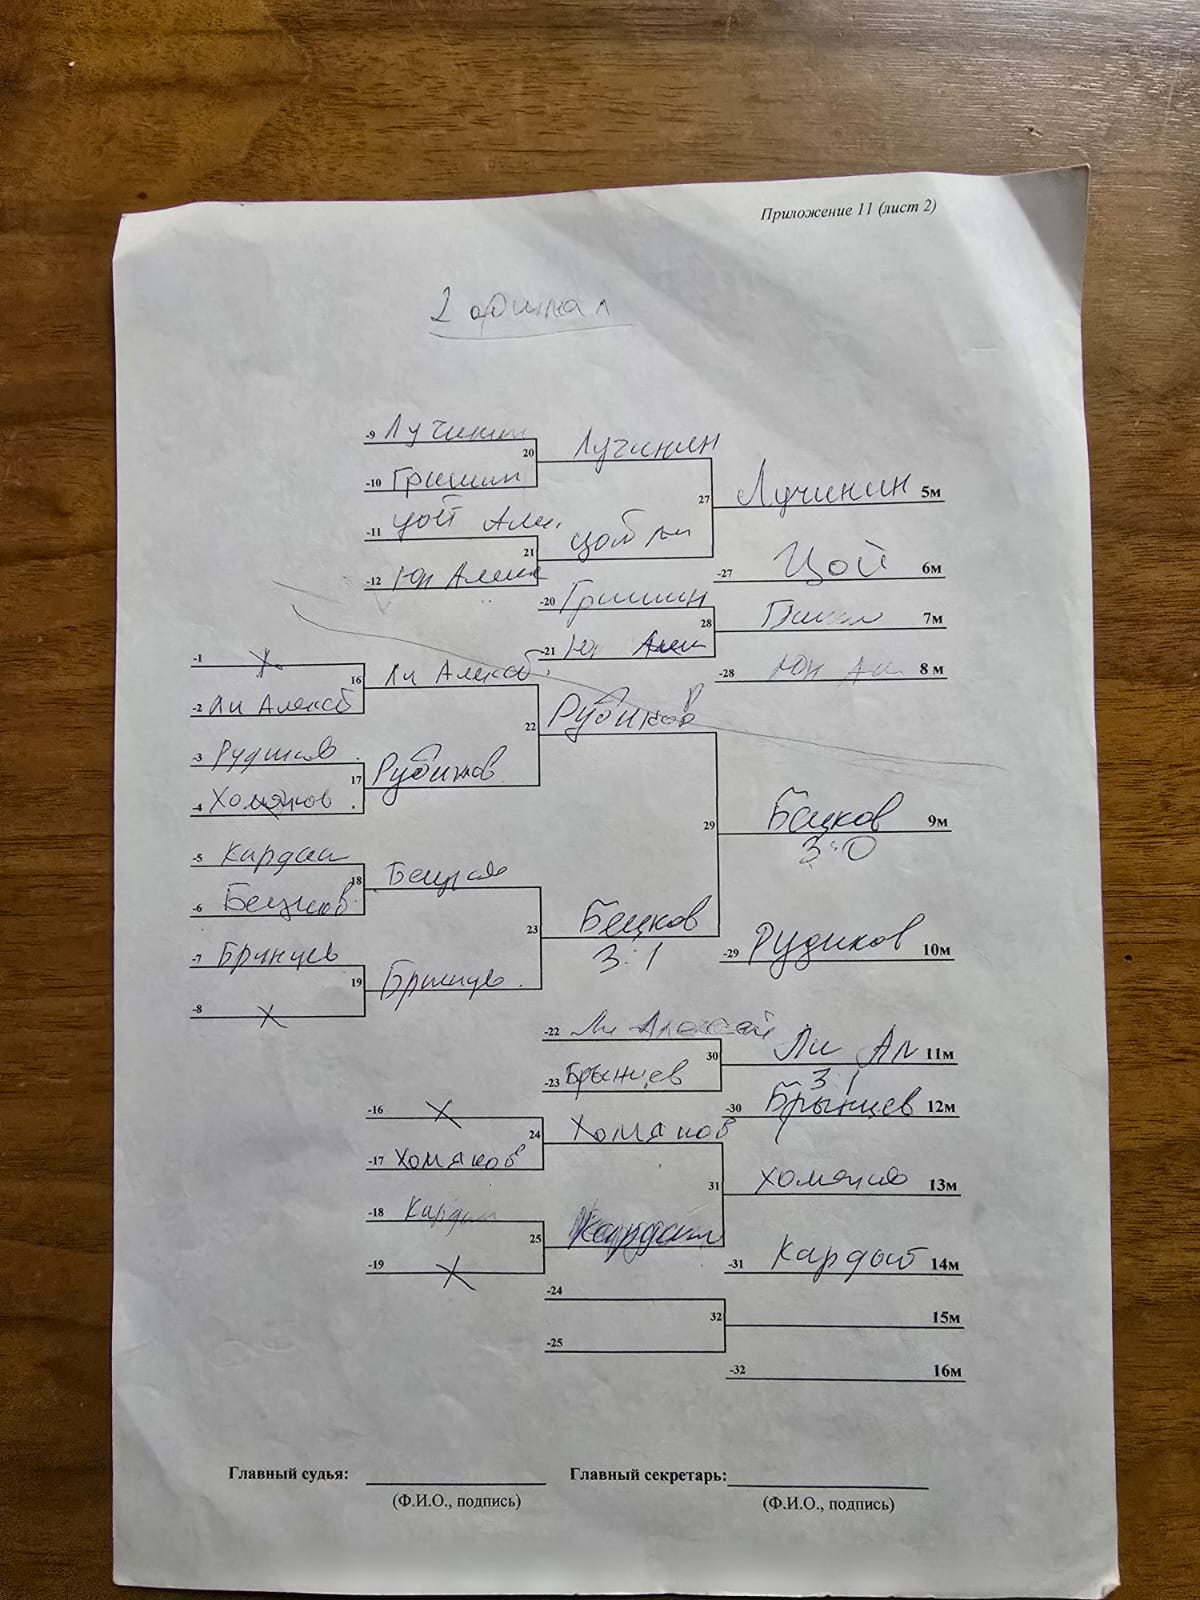 Приложение 11 (лист 2)
2 финал
-9 Лучинин
20
Лучинин
-10 Гришин
27
Лучинин 5м
-11 Цой Али.
21
Цой
-12 Юн Алек
-27 Цой 6м
-20 Гришин
28
7м
-21 Юн Алек
-28 Юн Ал 8 м
-1 X
16
Ли Алексей
-2 Ли Алексей
22
Рудиков
-3 Рудиков
17
Рудиков
-4 Хомяков
29
Бецков 9м
3:0
-5 Кардаш
18
Бецков
-6 Бецков
23
Бецков
3:1
-7 Брынцев
19
Брынцев
-8 X
-29 Рудиков 10м
-22 Ли Алексей
30
Ли Ал 11м
3 1
-23 Брынцев
-30 Брынцев 12м
-16 X
24
Хомяков
-17 Хомяков
31
Хомяков 13м
-18
25
-19 X
-31 14м
-24
32
15м
-25
-32 16м
Главный судья: Главный секретарь:
(Ф.И.О., подпись) (Ф.И.О., подпись)